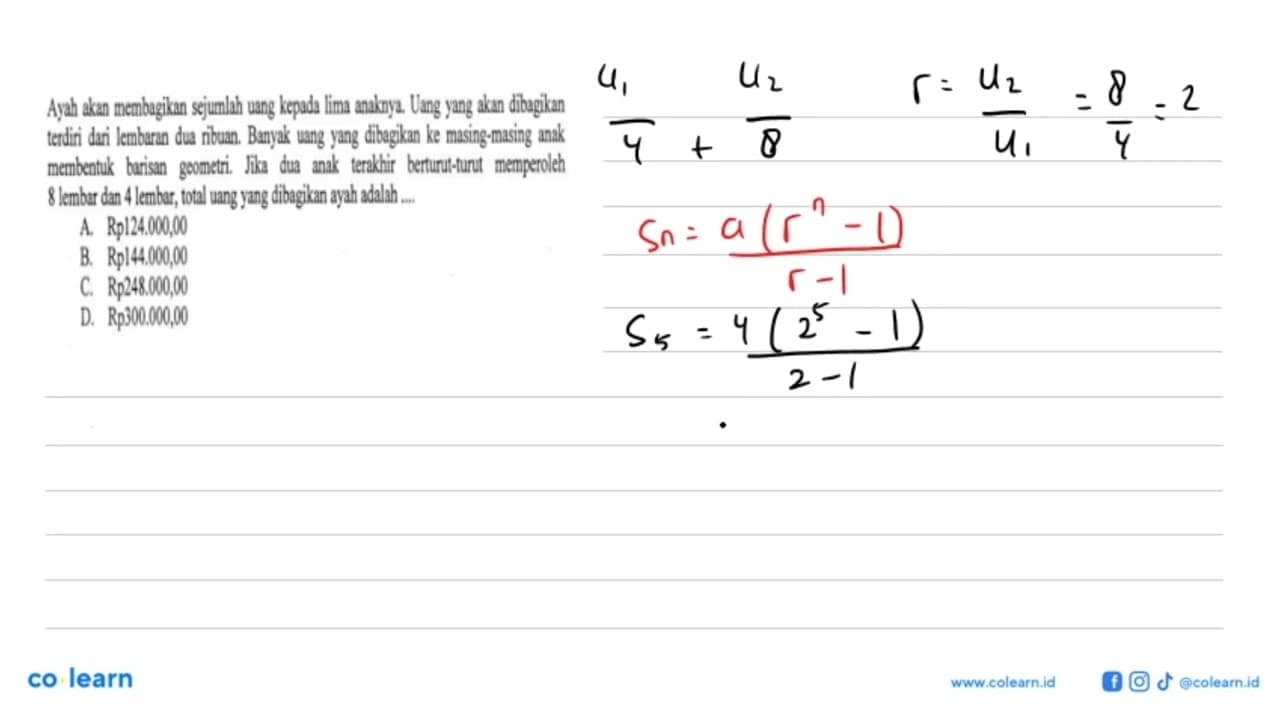 Ayah akan membagikan sejumlah uang kepada lima anaknya. Uang yang akan dibagikan
terdiri dari lembaran dua ribuan. Banyak uang yang dibagikan ke masing-masing anak
membentuk barisan geometri. Jika dua anak terakhir berturut-turut memperoleh
8 lembar dan 4 lembar, total uang yang dibagikan ayah adalah ....
A. Rp124.000,00
B. Rp144.000,00
C. Rp248.000,00
D. Rp300.000,00
u₁ u₂
4 + 8
r = u₂/u₁ = 8/4 = 2
Sn = a(rⁿ - 1)
r - 1
S₅ = 4(2⁵ - 1)
2 - 1
co learn
www.colearn.id
@colearn.id